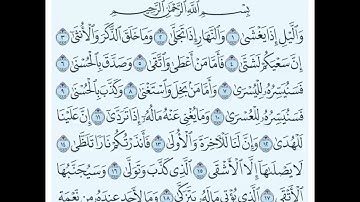 بِسْمِ ٱللَّهِ ٱلرَّحْمَٰنِ ٱلرَّحِيمِ
وَٱلَّيْلِ إِذَا يَغْشَىٰ ١ وَٱلنَّهَارِ إِذَا تَجَلَّىٰ ٢ وَمَا خَلَقَ ٱلذَّكَرَ وَٱلْأُنثَىٰٓ ٣
إِنَّ سَعْيَكُمْ لَشَتَّىٰ ٤ فَأَمَّا مَنْ أَعْطَىٰ وَٱتَّقَىٰ ٥ وَصَدَّقَ بِٱلْحُسْنَىٰ ٦
فَسَنُيَسِّرُهُۥ لِلْيُسْرَىٰ ٧ وَأَمَّا مَنۢ بَخِلَ وَٱسْتَغْنَىٰ ٨ وَكَذَّبَ بِٱلْحُسْنَىٰ ٩
فَسَنُيَسِّرُهُۥ لِلْعُسْرَىٰ ١٠ وَمَا يُغْنِى عَنْهُ مَالُهُۥٓ إِذَا تَرَدَّىٰٓ ١١ إِنَّ عَلَيْنَا
لَلْهُدَىٰ ١٢ وَإِنَّ لَنَا لَلْـَٔاخِرَةَ وَٱلْأُولَىٰ ١٣ فَأَنذَرْتُكُمْ نَارًا تَلَظَّىٰ ١٤
لَا يَصْلَىٰهَآ إِلَّا ٱلْأَشْقَى ١٥ ٱلَّذِى كَذَّبَ وَتَوَلَّىٰ ١٦ وَسَيُجَنَّبُهَا
ٱلْأَتْقَى ١٧ ٱلَّذِى يُؤْتِى مَالَهُۥ يَتَزَكَّىٰ ١٨ وَمَا لِأَحَدٍ عِندَهُۥ مِن نِّعْمَةٍ